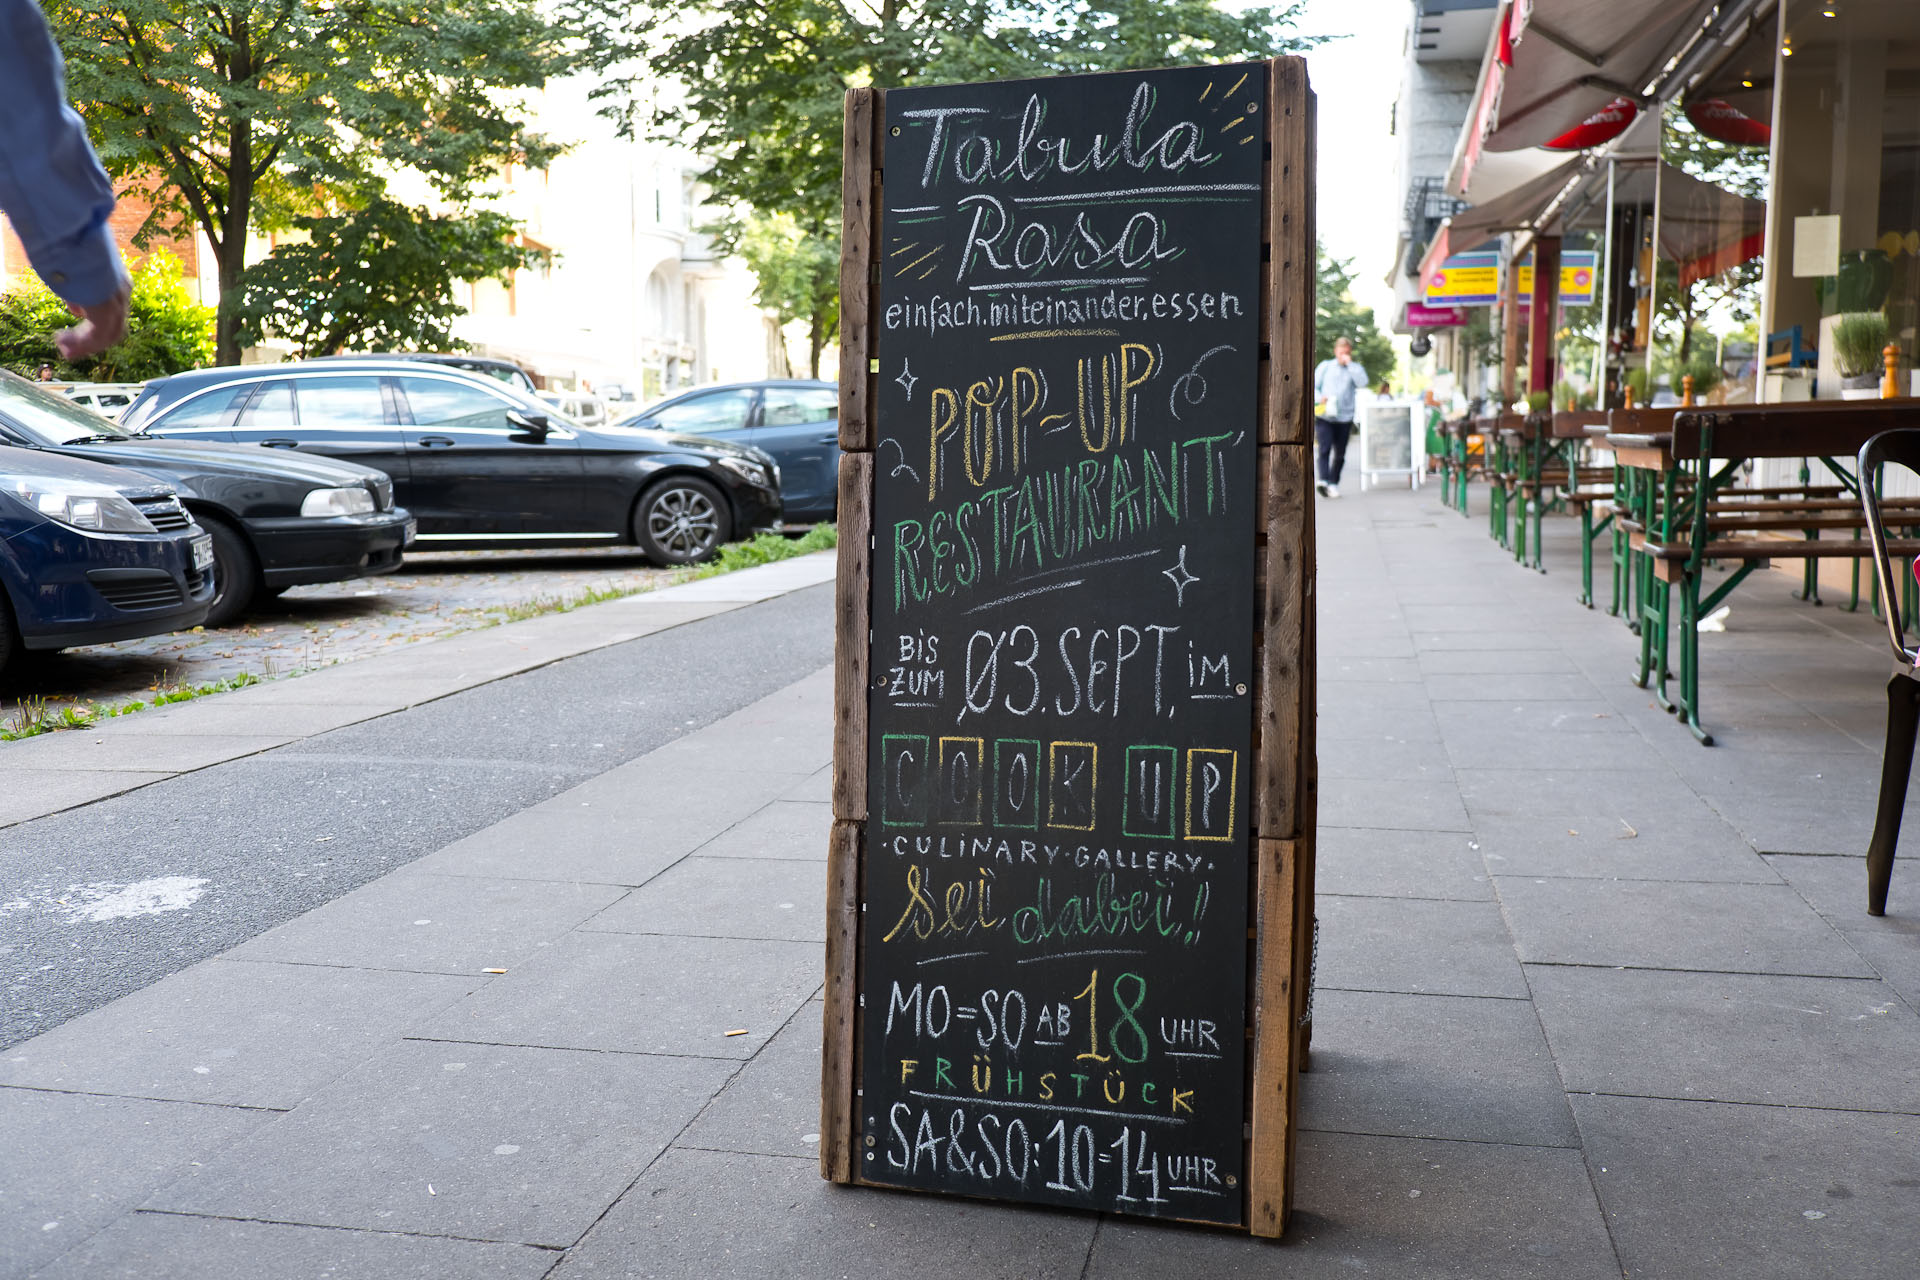 Tabula
Rasa
einfach.miteinander.essen
POP-UP
RESTAURANT
BIS ZUM 03. SEPT. IM
COOK UP
·CULINARY·GALLERY·
Sei dabei!
MO=SO AB 18 UHR
FRÜHSTÜCK
SA&SO: 10=14 UHR